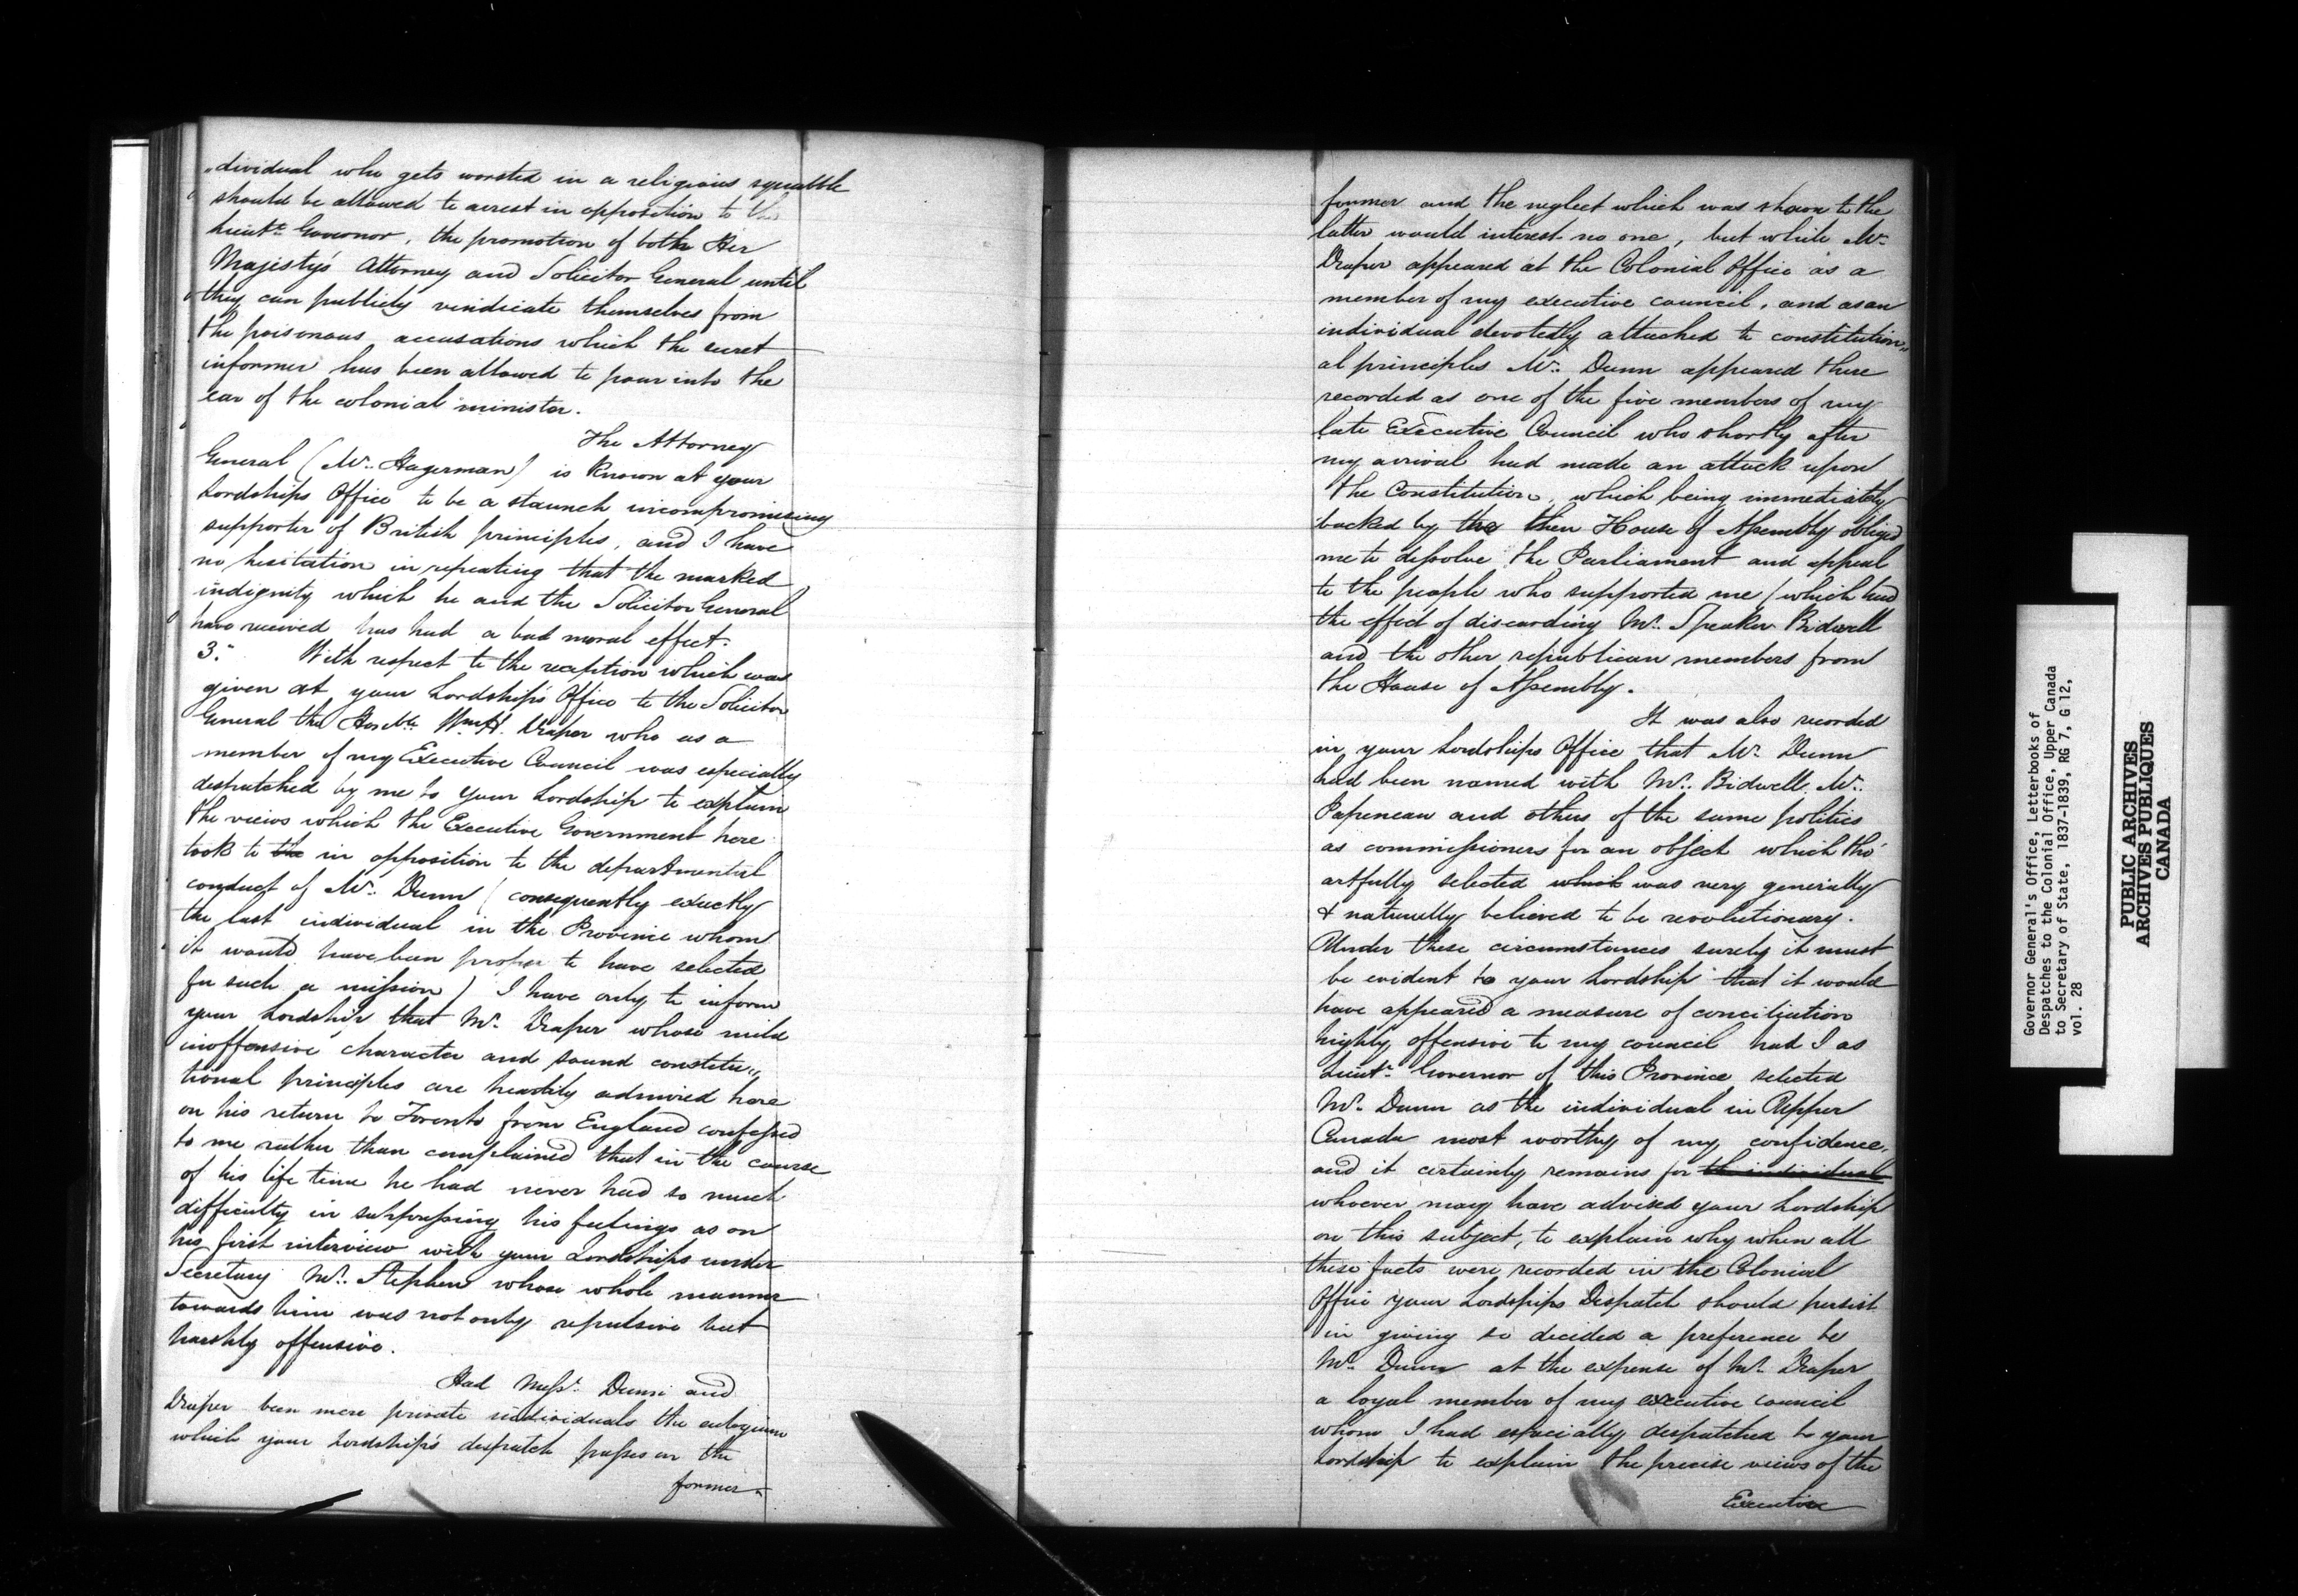 "dividual who gets worsted in a religious squabble
should be allowed to arrest in opposition to the
Lieut.t Governor, the promotion of both Her
Majesty's Attorney and Solicitor General until
they can publicly vindicate themselves from
the poisonous accusations which the secret
informer has been allowed to pour into the
ear of the colonial minister.
The Attorney
General (Mr. Hagerman) is known at your
Lordships Office to be a staunch incompromising
supporter of British principles, and I have
no hesitation in repeating that the marked
indignity which he and the Solicitor General
have received has had a bad moral effect.
3. With respect to the reception which was
given at your Lordship's Office to the Solicitor
General the Honble. Wm. H. Draper who as a
member of my Executive Council was especially
despatched by me to your Lordship to explain
the views which the Executive Government here
took to the in opposition to the departmental
conduct of Mr. Dunn (consequently exactly
the last individual in the Province whom
it would have been proper to have selected
for such a mission) I have only to inform
your Lordship that Mr. Draper whose mild
inoffensive character and sound constitu"
tional principles are heartily admired here
on his return to Toronto from England confessed
to me rather than complained that in the course
of his life time he had never had so much
difficulty in suppressing his feelings as on
his first interview with your Lordships under
Secretary Mr. Stephen whose whole manner
towards him was not only repulsive but
harshly offensive.
Had Messrs. Dunn and
Draper been mere private individuals the eulogium
which your Lordship's despatch passes on the
former
former and the neglect which was shown to the
latter would interest no one, but while Mr.
Draper appeared at the Colonial Office as a
member of my executive council, and as an
individual devotedly attached to constitution"
al principles Mr. Dunn appeared there
recorded as one of the five members of my
late Executive Council who shortly after
my arrival had made an attack upon
the Constitution, which being immediately
backed by the then House of Assembly obliged
me to dissolve the Parliament and appeal
to the people who supported me (which had
the effect of discarding Mr. Speaker Bidwell
and the other republican members from
the House of Assembly.
It was also recorded
in your Lordships Office that Mr. Dunn
had been named with Mr. Bidwell. Mr.
Papineau and others of the same politics
as commissioners for an object which tho'
artfully selected which was very generally
& naturally believed to be revolutionary.
Under these circumstances surely it must
be evident to your Lordship that it would
have appeared a measure of conciliation
highly offensive to my council had I as
Lieut. Governor of this Province selected
Mr. Dunn as the individual in Upper
Canada most worthy of my confidence,
and it certainly remains for the individual
whoever may have advised your Lordship
on this subject, to explain why when all
these facts were recorded in the Colonial
Office your Lordships Despatch should persist
in giving so decided a preference to
Mr. Dunn at the expense of Mr. Draper
a loyal member of my executive council
whom I had especially despatched to your
Lordship to explain the precise views of the
Executive
Governor General's Office, Letterbooks of
Despatches to the Colonial Office, Upper Canada
to Secretary of State, 1837-1839, RG 7, G 12,
vol. 28
PUBLIC ARCHIVES
ARCHIVES PUBLIQUES
CANADA